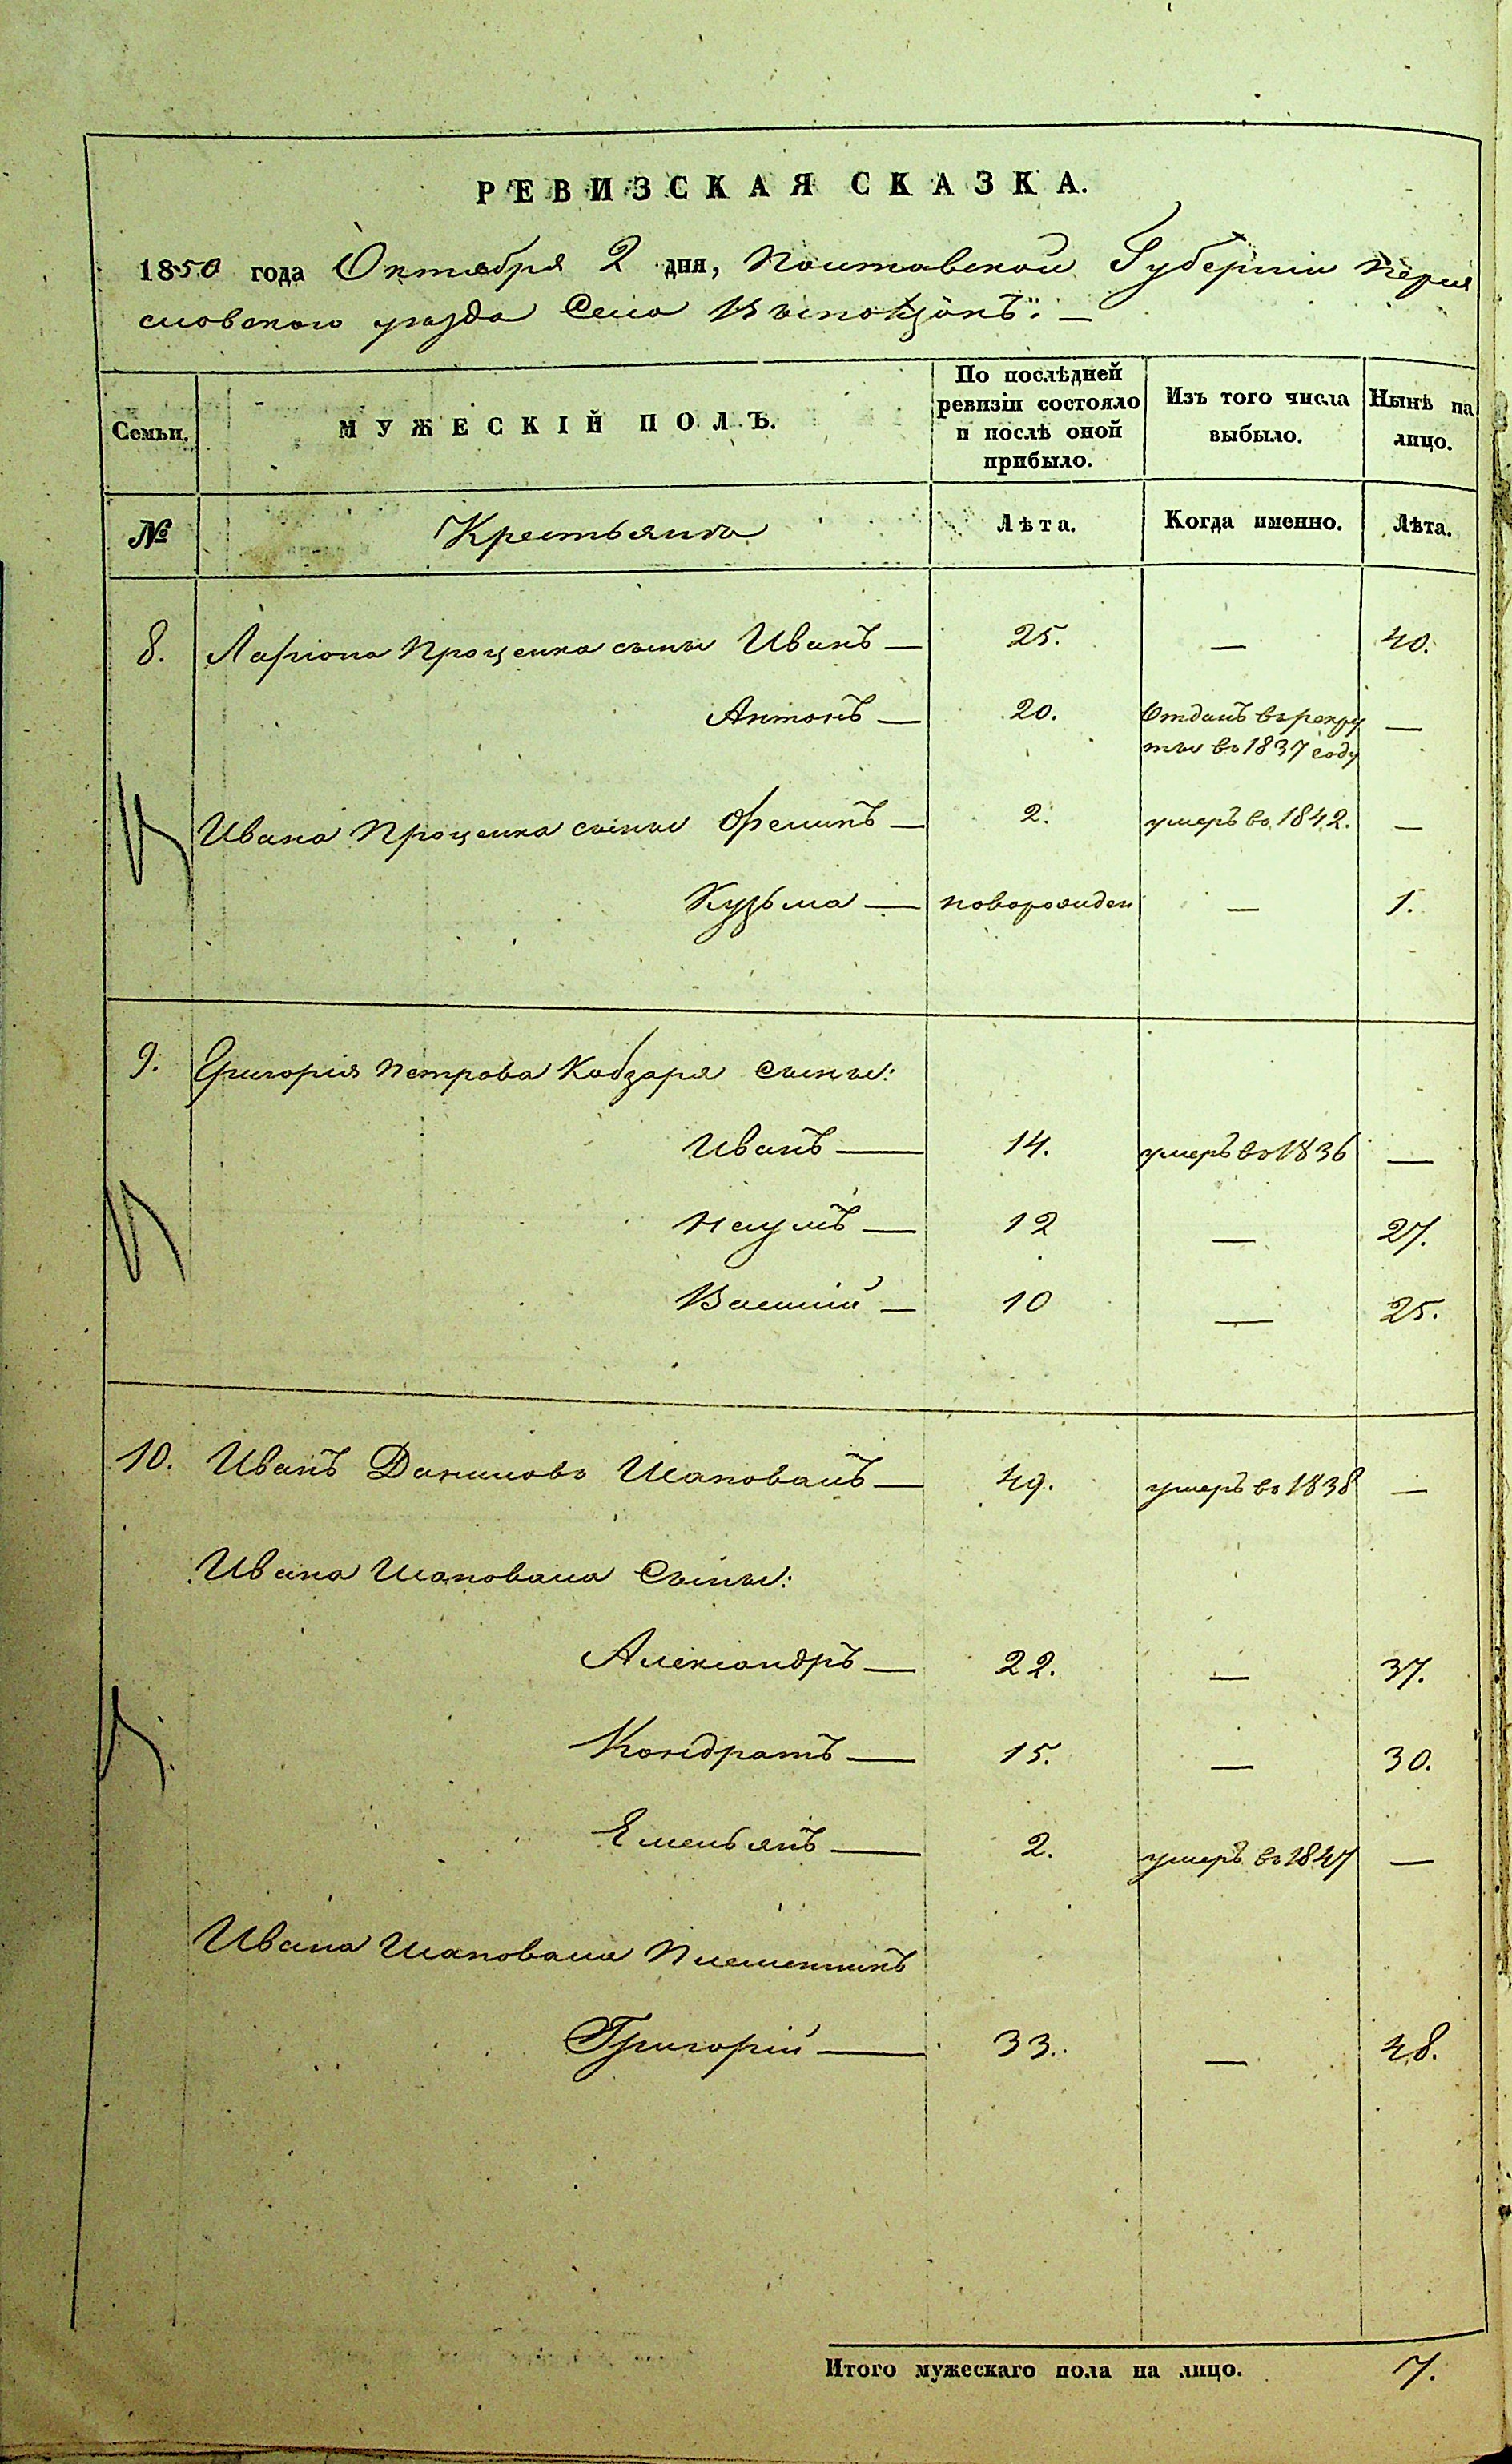 РЕВИЗСКАЯ СКАЗКА.
1850 года Октября 2 дня, Полтавской Губерніи Перея
словского уезда Села
Семьи. МУЖЕСКІЙ ПОЛЪ. По послѣдней ревизіи состояло и послѣ оной прибыло. Изъ того числа выбыло. Нынѣ на лицо.
№ Крестьяне Лѣта. Когда именно. Лѣта.
8. Ларіона Проценка сыны Иванъ — 25. — 40.
Антонъ — 20. Отданъ въ рекру —
ты въ 1837 году
Ивана Проценка сыны — 2. умеръ въ 1842. —
Кузьма — новорожден — 1.
9. Григорія Петрова Кобзаря Сыны:
Иванъ — 14. умеръ въ 1836 —
Наумъ — 12 — 27.
Василій — 10 — 25.
10. Иванъ Даниловъ Шаповалъ — 49. умеръ въ 1838 —
Ивана Шаповала Сыны:
Александръ — 22. — 37.
Кондратъ — 15. — 30.
Емельянъ — 2. умеръ въ 1847 —
Ивана Шаповала Племенникъ
Григорій — 33. — 48.
Итого мужескаго пола на лицо. 7.